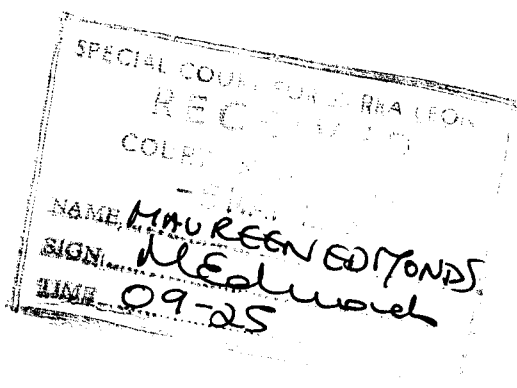 SPECIAL COURT FOR SIERRA LEONE
RECEIVED
COURT
NAME MAUREEN EDMONDS
SIGN MEdmonds
TIME 09-25